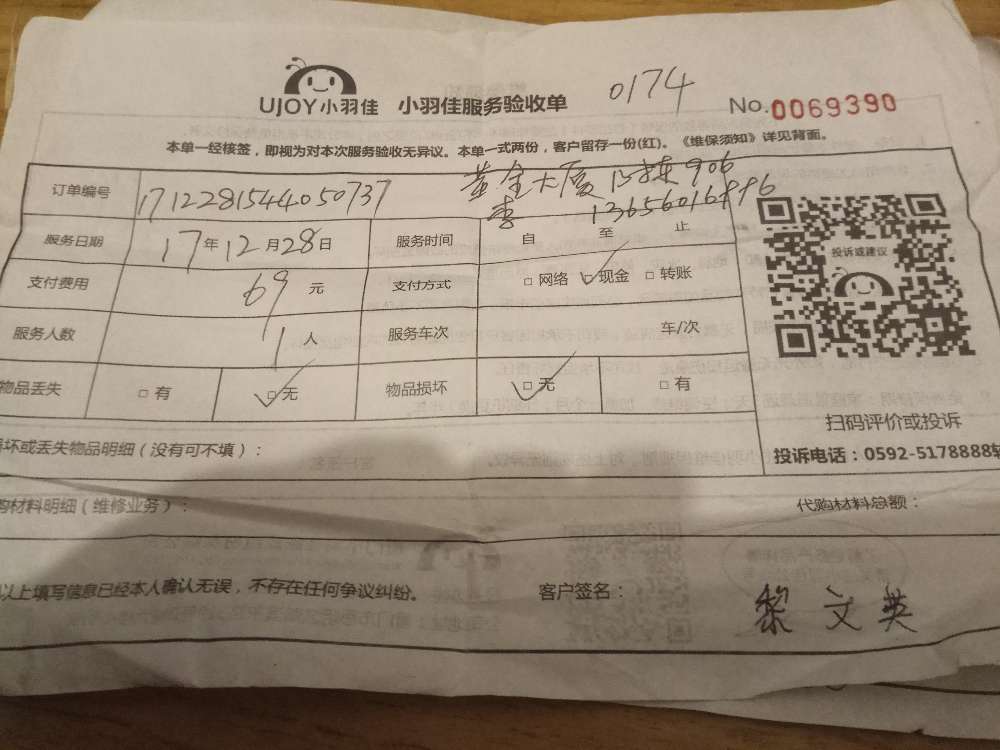 UJOY小羽佳 小羽佳服务验收单 0174 No.0069390
本单一经核签，即视为对本次服务验收无异议。本单一式两份，客户留存一份(红)。《维保须知》详见背面。
黄金大厦 栋906
订单编号 1712281544050737
李
服务日期 17年12月28日 服务时间 自 至 止
支付费用 69元 支付方式 □网络 □现金 □转账
投诉或建议
服务人数 1人 服务车次 车/次
物品丢失 □有 □无 物品损坏 □无 □有
扫码评价或投诉
坏或丢失物品明细（没有可不填）：
投诉电话：0592-5178888转
购材料明细（维修业务）： 代购材料总额：
以上填写信息已经本人确认无误，不存在任何争议纠纷。 客户签名： 黎文英